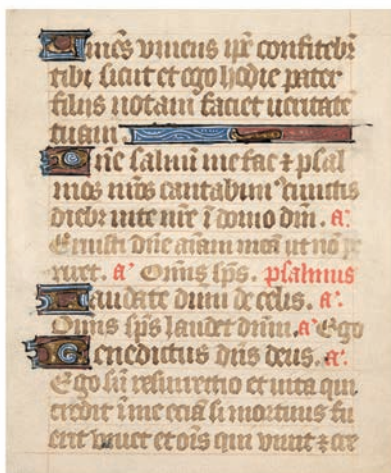 Uiuēs viuens ip̄e confitebr̄
tibi sicut et ego hodie pater
filiis notam faciet ueritatē
tuam
Dn̄e saluū me fac ⁊ psal
mos nr̄os cantabim⁹ cunctis
dieb; uite nr̄e ī domo dn̄i. a.
Eruisti dn̄e aīam meā ut nō pe
riret. a Omīs sp̄s. psalmus
Laudate dnm̄ de celis. a.
Omīs sp̄s laudet dn̄m. a Ego
Benedictus dn̄s deus. a.
Ego sū resurrectio et uita qui
credit ī me eciā si mortuus fu
erit uiuet et oīs qui uiuit ⁊ cre